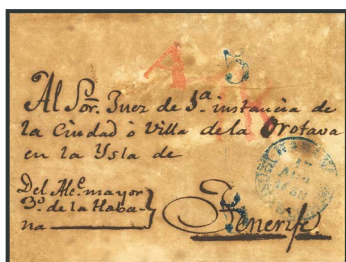 A 5
Al Sor. Juez de 1a. instancia de
la Ciudad ò Villa de la Orotava
en la Ysla de
Del Alce. mayor
3o. de la Haba-
na
Tenerife.